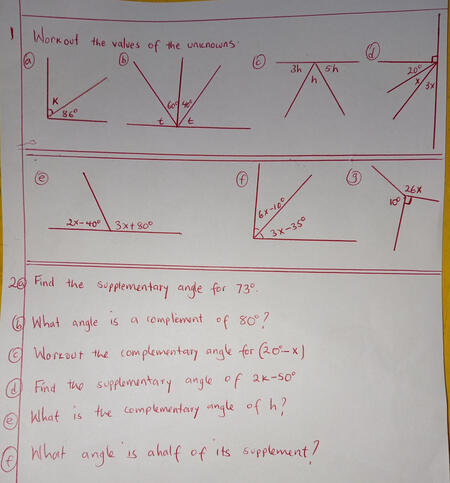 1 Workout the values of the unknowns.
(a) (b) (c) (d)
K
86°
60° 40°
t t
3h 5h
h
20°
x 3x
(e) (f) (g)
2x-40° 3x+80°
6x-10°
3x-35°
26x
10°
2(a) Find the supplementary angle for 73°.
(b) What angle is a complement of 80°?
(c) Workout the complementary angle for (20°-x)
(d) Find the supplementary angle of 2k-50°
(e) What is the complementary angle of h?
(f) What angle is ahalf of its supplement?